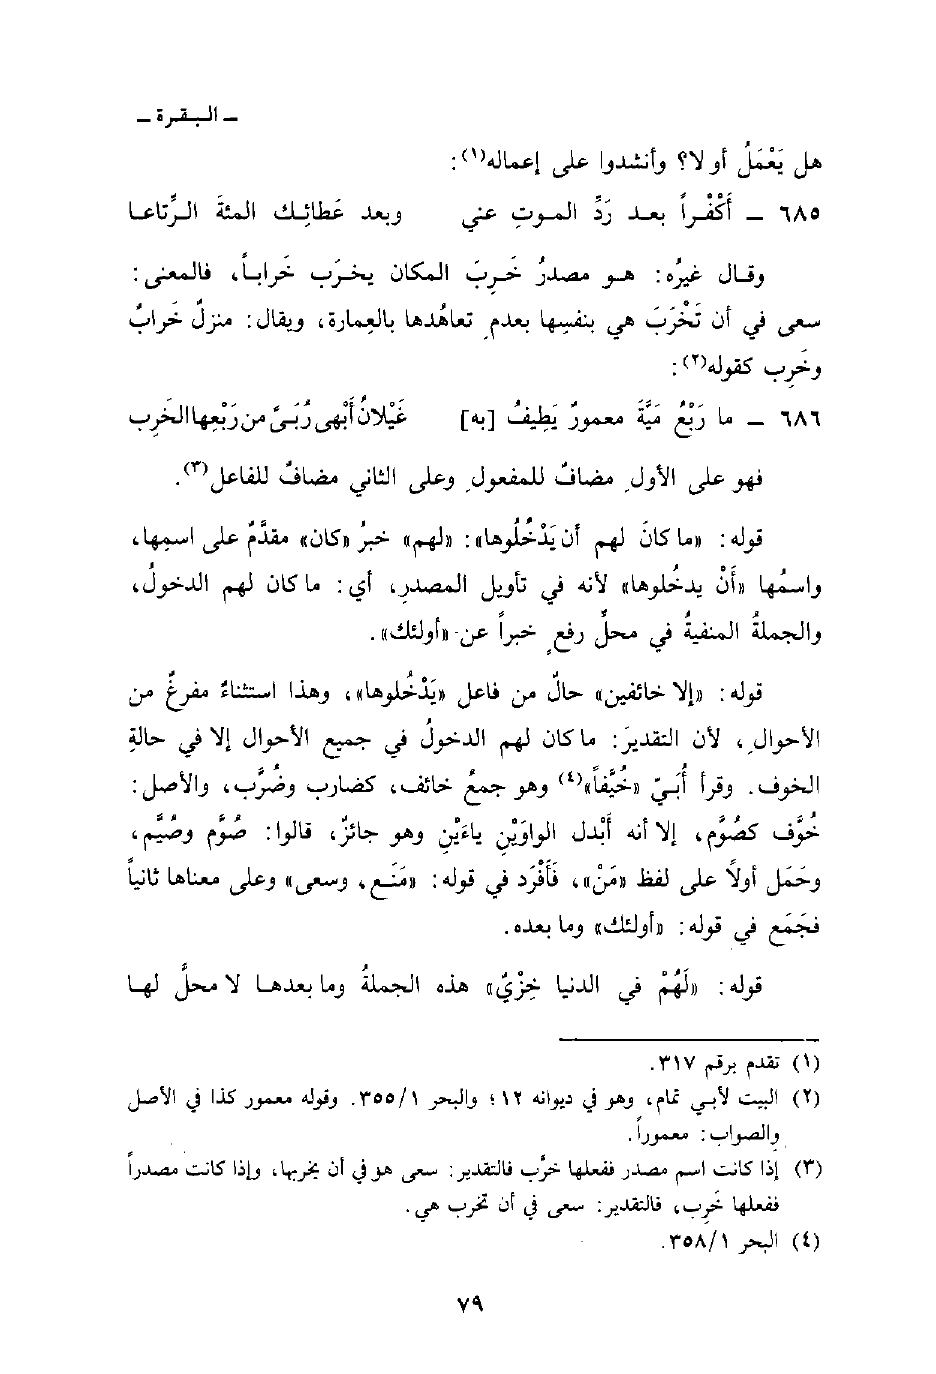 ـ البقرة ـ
هل يَعْمَلُ أو لا؟ وأنشدوا على إعماله(١):
٦٨٥ ـ أَكُفْراً بعد رَدِّ الموتِ عني وبعد عَطائِك المئةَ الرِّتاعا
وقال غيرُه: هو مصدرُ خَرِبَ المكان يخرَب خَراباً، فالمعنى:
سعى في أن تَخْرَبَ هي بنفسِها بعدمِ تعاهُدها بالعِمارة، ويقال: منزلٌ خَرابٌ
وخَرِب كقوله(٢):
٦٨٦ ـ ما رَبْعُ مَيَّةَ معمورٌ يَطِيفُ [به] غَيْلانُ أَبْهى رُبَىً من رَبْعِها الخَرِب
فهو على الأولِ مضافٌ للمفعولِ وعلى الثاني مضافٌ للفاعل(٣).
قوله: «ما كانَ لهم أن يَدْخُلُوها»: «لهم» خبرُ «كان» مقدَّمٌ على اسمِها،
واسمُها «أَنْ يدخُلوها» لأنه في تأويل المصدرِ، أي: ما كان لهم الدخولُ،
والجملةُ المنفيةُ في محلِّ رفعٍ خبراً عن «أولئك».
قوله: «إلا خائفين» حالٌ من فاعل «يَدْخُلوها»، وهذا استثناءٌ مفرغٌ من
الأحوالِ، لأن التقديرَ: ما كان لهم الدخولُ في جميع الأحوال إلا في حالةِ
الخوف. وقرأ أُبَيّ «خُيَّفاً»(٤) وهو جمعُ خائف، كضارب وضُرَّب، والأصل:
خُوَّف كصُوَّم، إلا أنه أَبْدل الواوَيْنِ ياءَيْنِ وهو جائزٌ، قالوا: صُوَّم وصُيَّم،
وحَمَل أولاً على لفظ «مَنْ»، فَأَفْرد في قوله: «مَنَع، وسعى» وعلى معناها ثانياً
فجَمَع في قوله: «أولئك» وما بعده.
قوله: «لَهُمْ في الدنيا خِزْيٌ» هذه الجملةُ وما بعدها لا محلَّ لها
(١) تقدم برقم ٣١٧.
(٢) البيت لأبي تمام، وهو في ديوانه ١٢؛ والبحر ٣٥٥/١. وقوله معمور كذا في الأصل
والصواب: معموراً.
(٣) إذا كانت اسم مصدر ففعلها خرَّب فالتقدير: سعى هو في أن يخربها، وإذا كانت مصدراً
ففعلها خَرِب، فالتقدير: سعى في أن تخرب هي.
(٤) البحر ٣٥٨/١.
٧٩